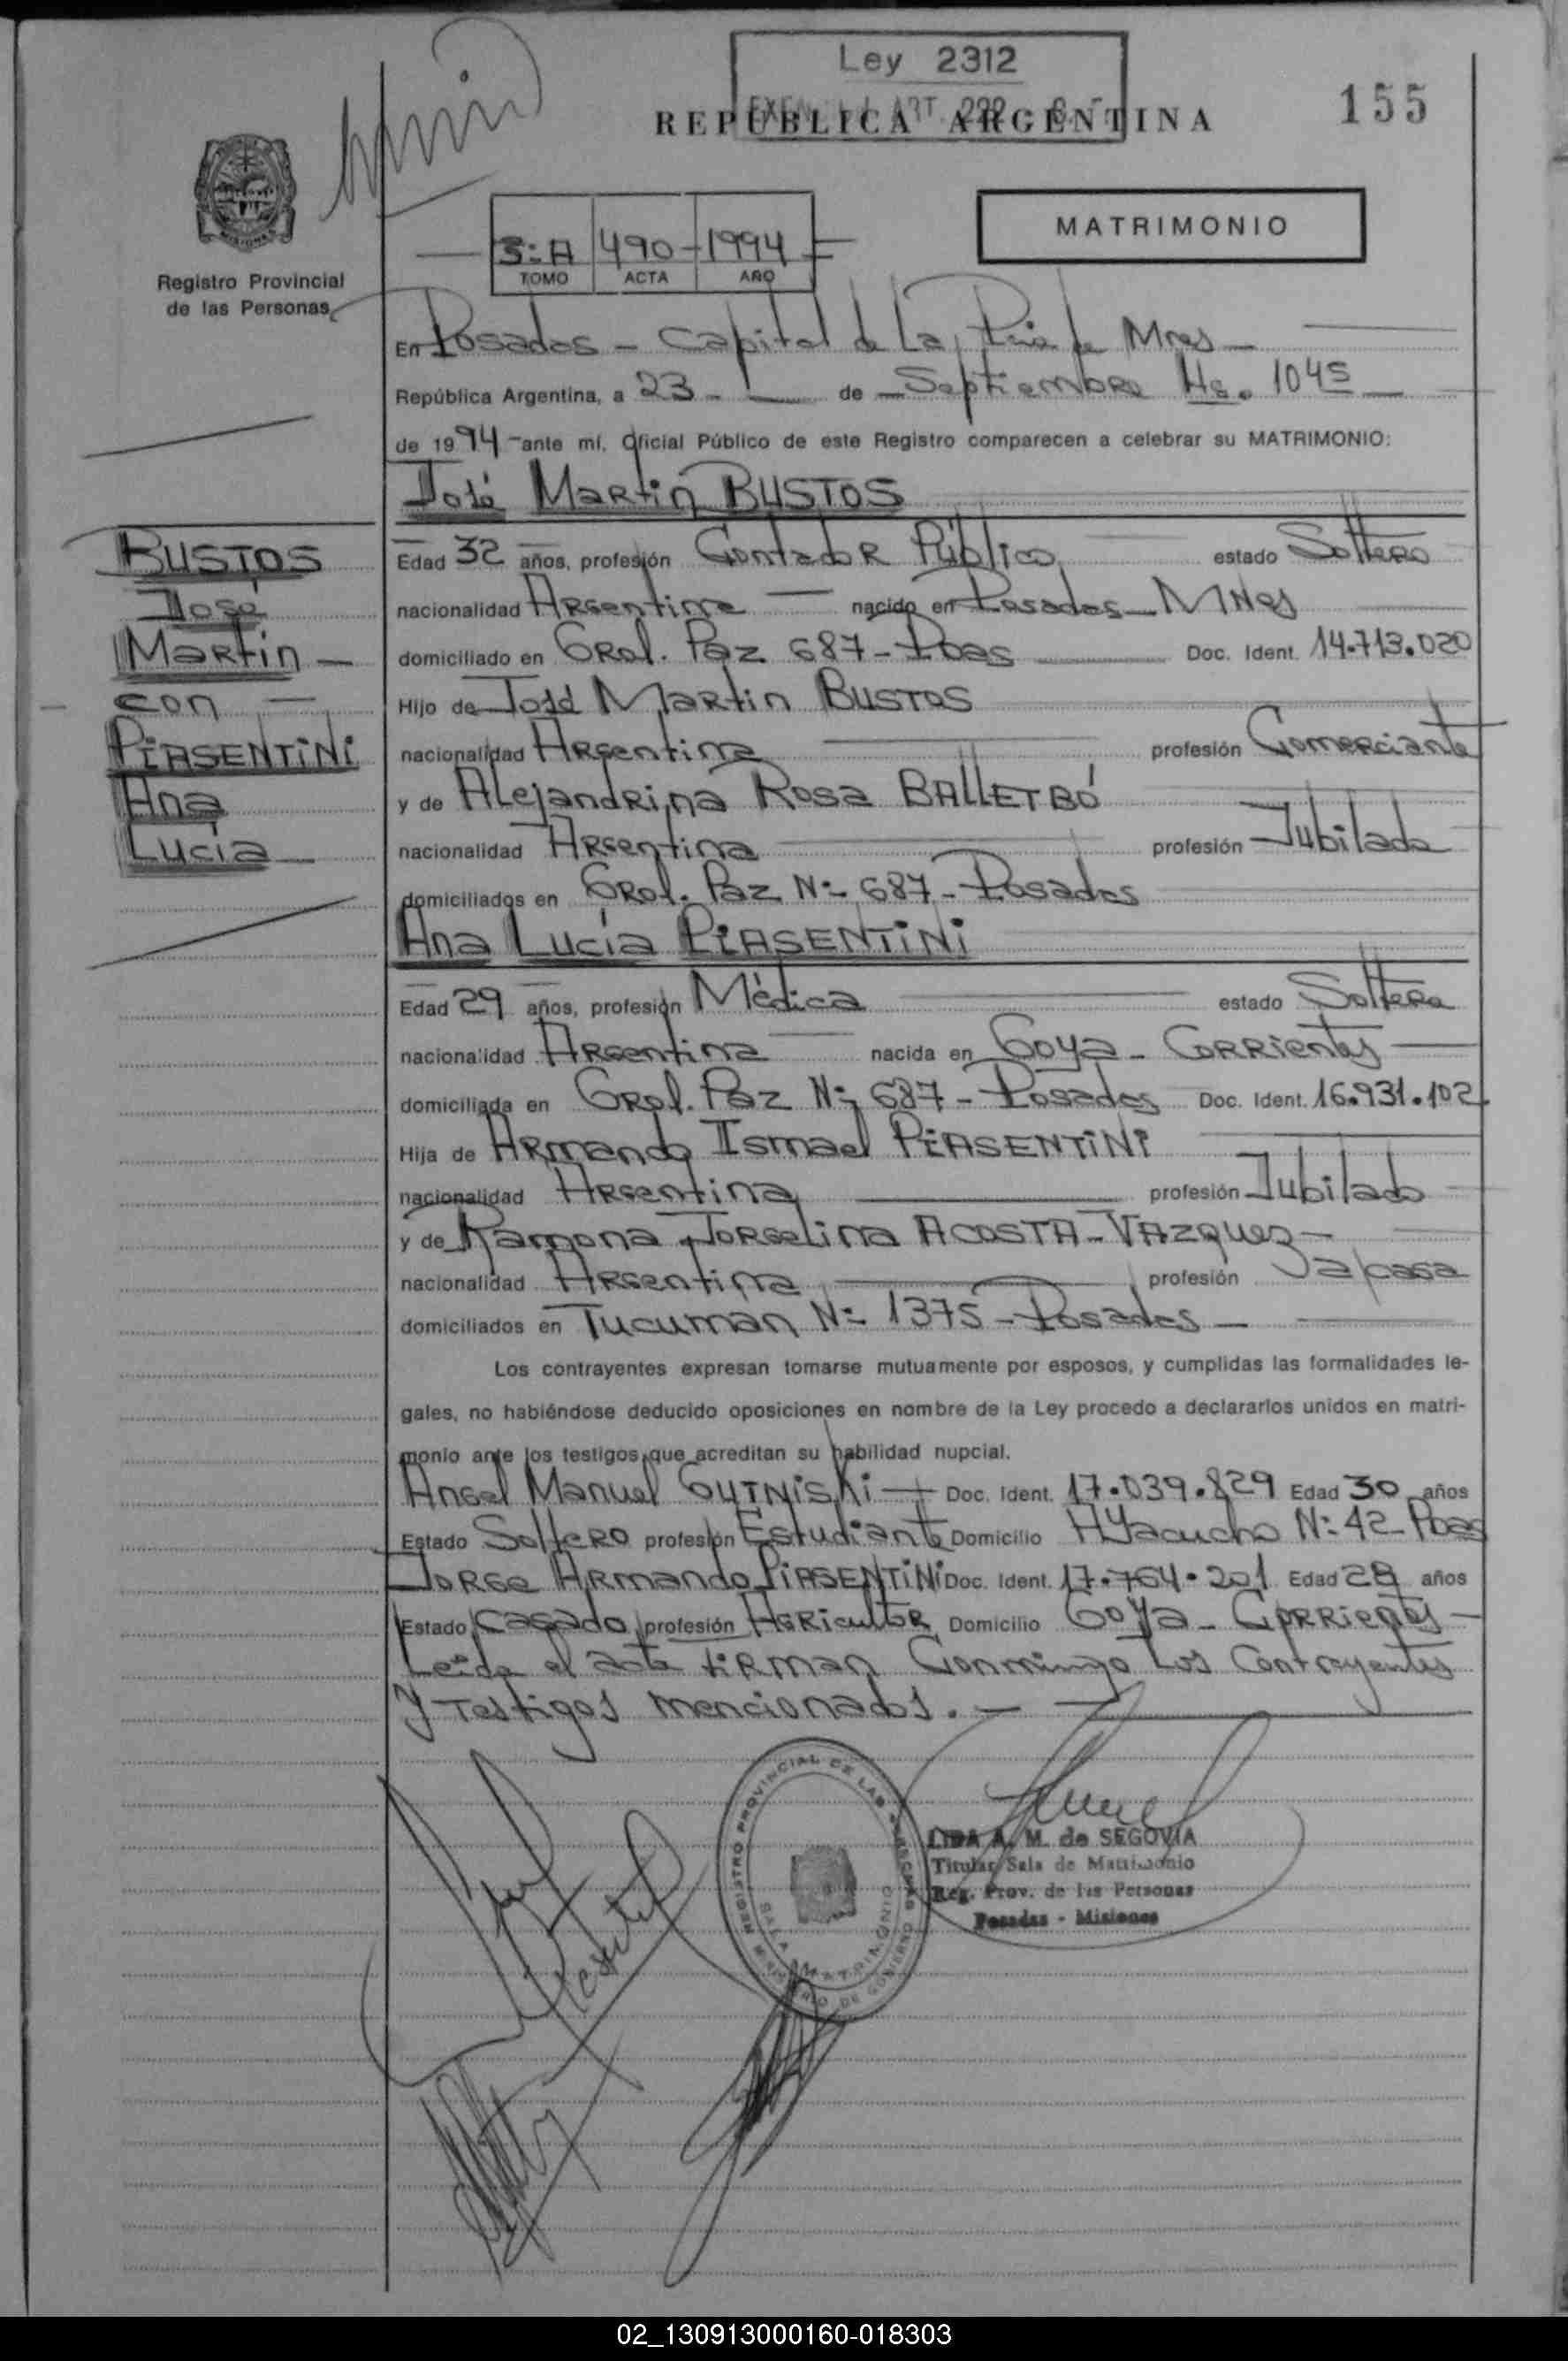 Ley 2312
REPUBLICA ARGENTINA
155
MATRIMONIO
3:A 490-1994
TOMO ACTA AÑO
Registro Provincial
de las Personas
En Posadas - Capital de La Pcia de Mnes -
República Argentina, a 23 - de - Septiembre Hs. 1045 -
de 1994 - ante mí, Oficial Público de este Registro comparecen a celebrar su MATRIMONIO:
José Martin BUSTOS
BUSTOS
José
Martin -
con -
PIASENTINI
Ana
Lucía -
Edad 32 años, profesión Contador Público estado Soltero
nacionalidad Argentina - nacido en Posadas - MNes
domiciliado en Gral. Paz 687 - Pdas Doc. Ident. 14.713.020
Hijo de José Martin BUSTOS
nacionalidad Argentina profesión Comerciante
y de Alejandrina Rosa BALLETBÓ
nacionalidad Argentina profesión Jubilada
domiciliados en Gral. Paz Nº 687 - Posadas
Ana Lucía PIASENTINI
Edad 29 años, profesión Médica estado Soltera
nacionalidad Argentina nacida en Goya - Corrientes
domiciliada en Gral. Paz Nº 687 - Posadas Doc. Ident. 16.931.102
Hija de Armando Ismael PIASENTINI
nacionalidad Argentina profesión Jubilado
y de Ramona Jorgelina ACOSTA - VAZQUEZ -
nacionalidad Argentina profesión
domiciliados en Tucuman Nº 1375 - Posadas -
Los contrayentes expresan tomarse mutuamente por esposos, y cumplidas las formalidades le-
gales, no habiéndose deducido oposiciones en nombre de la Ley procedo a declararlos unidos en matri-
monio ante los testigos que acreditan su habilidad nupcial.
Angel Manuel GUTNISKI - Doc. Ident. 17.039.829 Edad 30 años
Estado Soltero profesión Estudiante Domicilio AYacucho Nº 42 - Pdas
Jorge Armando PIASENTINI Doc. Ident. 17.764.201 Edad 28 años
Estado Casado profesión Agricultor Domicilio Goya - Corrientes -
Leída el acta firman Conmingo Los Contrayentes
Y Testigos mencionados. -
REGISTRO PROVINCIAL DE LAS PERSONAS
SALA MATRIMONIO
MINISTERIO DE GOBIERNO
LIDA A. M. de SEGOVIA
Titular Sala de Matrimonio
Reg. Prov. de las Personas
Posadas - Misiones
02_130913000160-018303